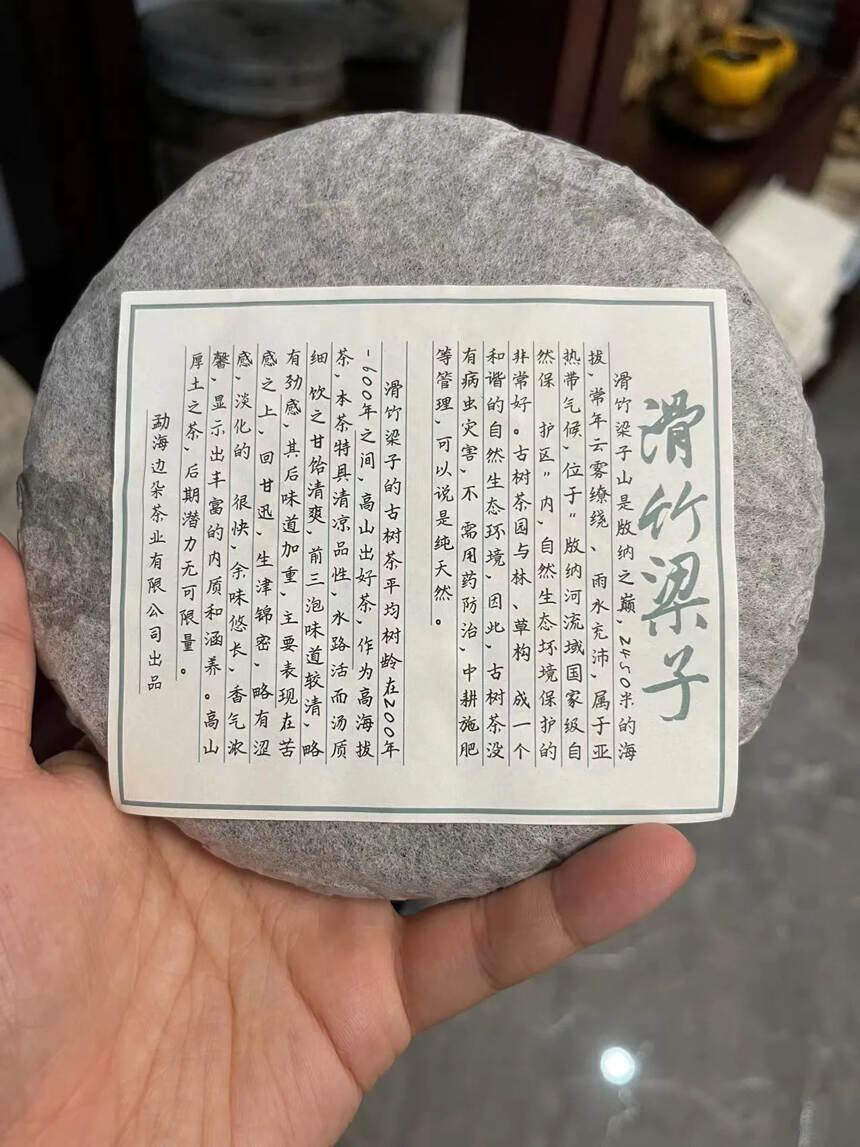 滑竹梁子
滑竹梁子山是版纳之巅、2450米的海
拔、常年云雾缭绕、雨水充沛、属于亚
热带气候、位于“版纳河流域国家级自
然保 护区”内、自然生态环境保护的
非常好。古树茶园与林、草构 成一个
和谐的自然生态环境、因此、古树茶没
有病虫灾害、不 需用药防治、中耕施肥
等管理、可以说是纯天然。
滑竹梁子的古树茶平均树龄在200年
-600年之间、高山出好茶、作为高海拔
茶、本茶特具清凉品性、水路活而汤质
细 饮之甘饴清爽、前三泡味道较清、略
有劲感、其后味道加重、主要表现在苦
感之上、回甘迅、生津锦密、略有涩
感、淡化的 很快、余味悠长、香气浓
馨、显示出丰富的内质和涵养。高山
厚土之茶、后期潜力无可限量。
勐海边杂茶业有限公司出品